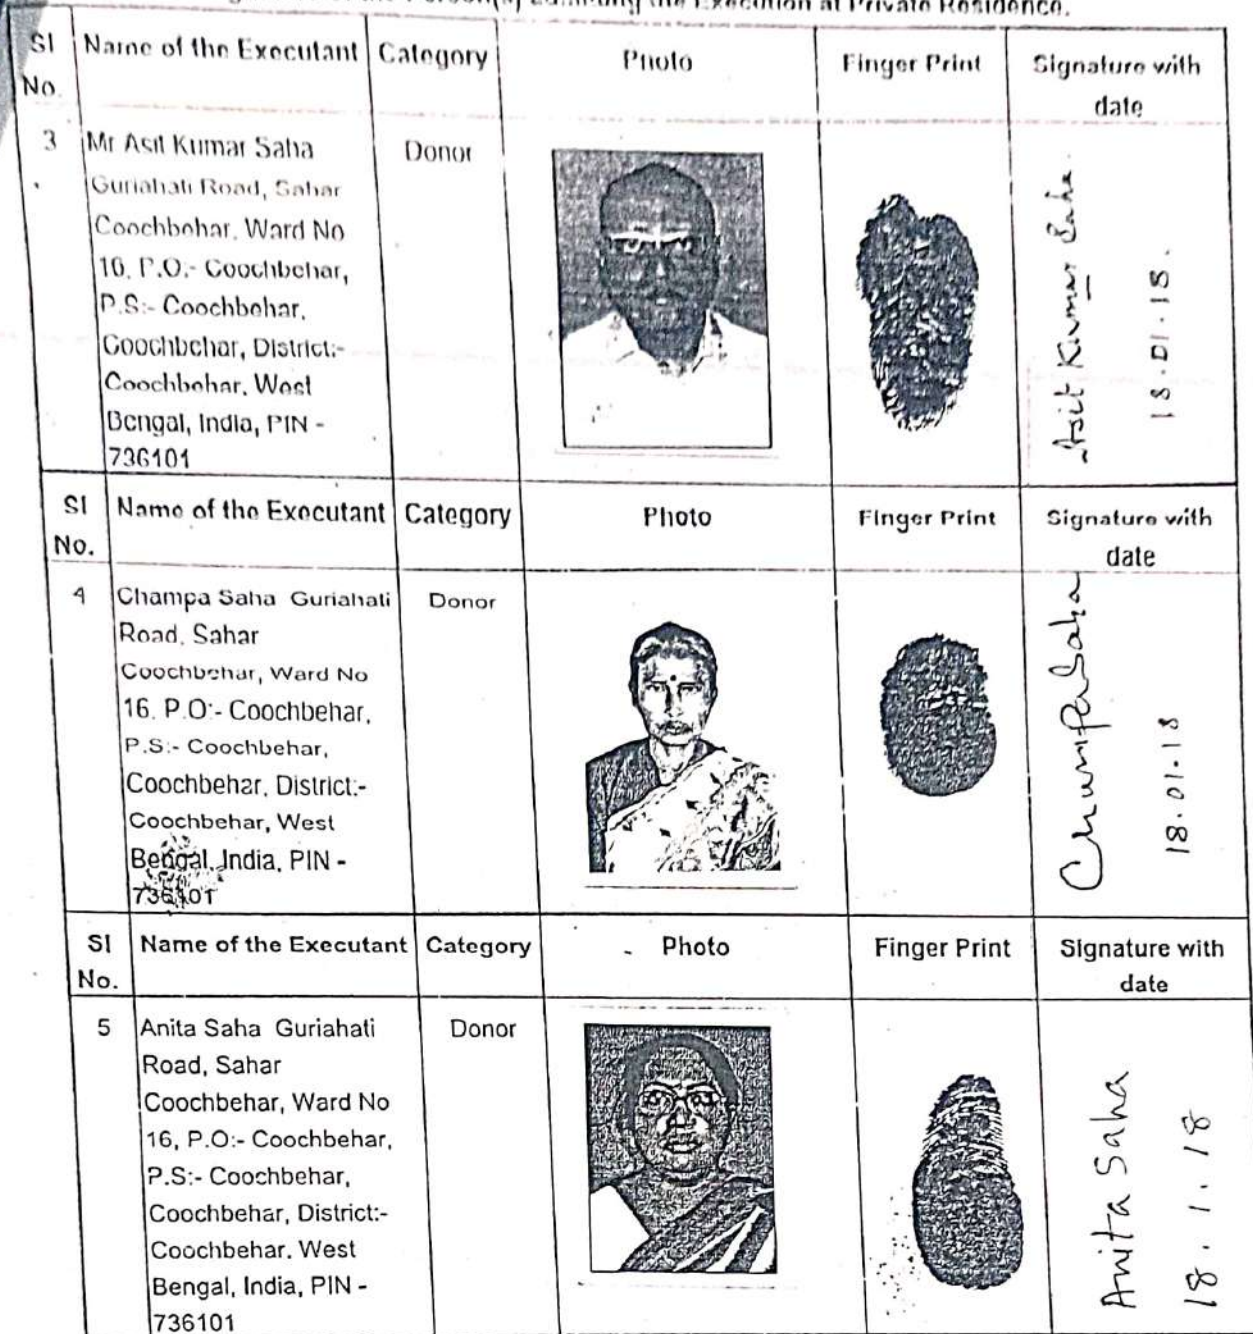 the Execution at Private Residence.
Sl No. Name of the Executant Category Photo Finger Print Signature with date
3 Mr Asit Kumar Saha Donor
Guriahati Road, Sahar
Coochbehar, Ward No
16, P.O:- Coochbehar,
P.S:- Coochbehar,
Coochbehar, District:-
Coochbehar, West
Bengal, India, PIN -
736101
Asit Kumar Saha.
18.01.18.
Sl No. Name of the Executant Category Photo Finger Print Signature with date
4 Champa Saha Guriahati Donor
Road, Sahar
Coochbehar, Ward No
16, P.O:- Coochbehar,
P.S:- Coochbehar,
Coochbehar, District:-
Coochbehar, West
Bengal, India, PIN -
736101
Champa Saha
18.01.18
Sl No. Name of the Executant Category Photo Finger Print Signature with date
5 Anita Saha Guriahati Donor
Road, Sahar
Coochbehar, Ward No
16, P.O:- Coochbehar,
P.S:- Coochbehar,
Coochbehar, District:-
Coochbehar, West
Bengal, India, PIN -
736101
Anita Saha
18.1.18